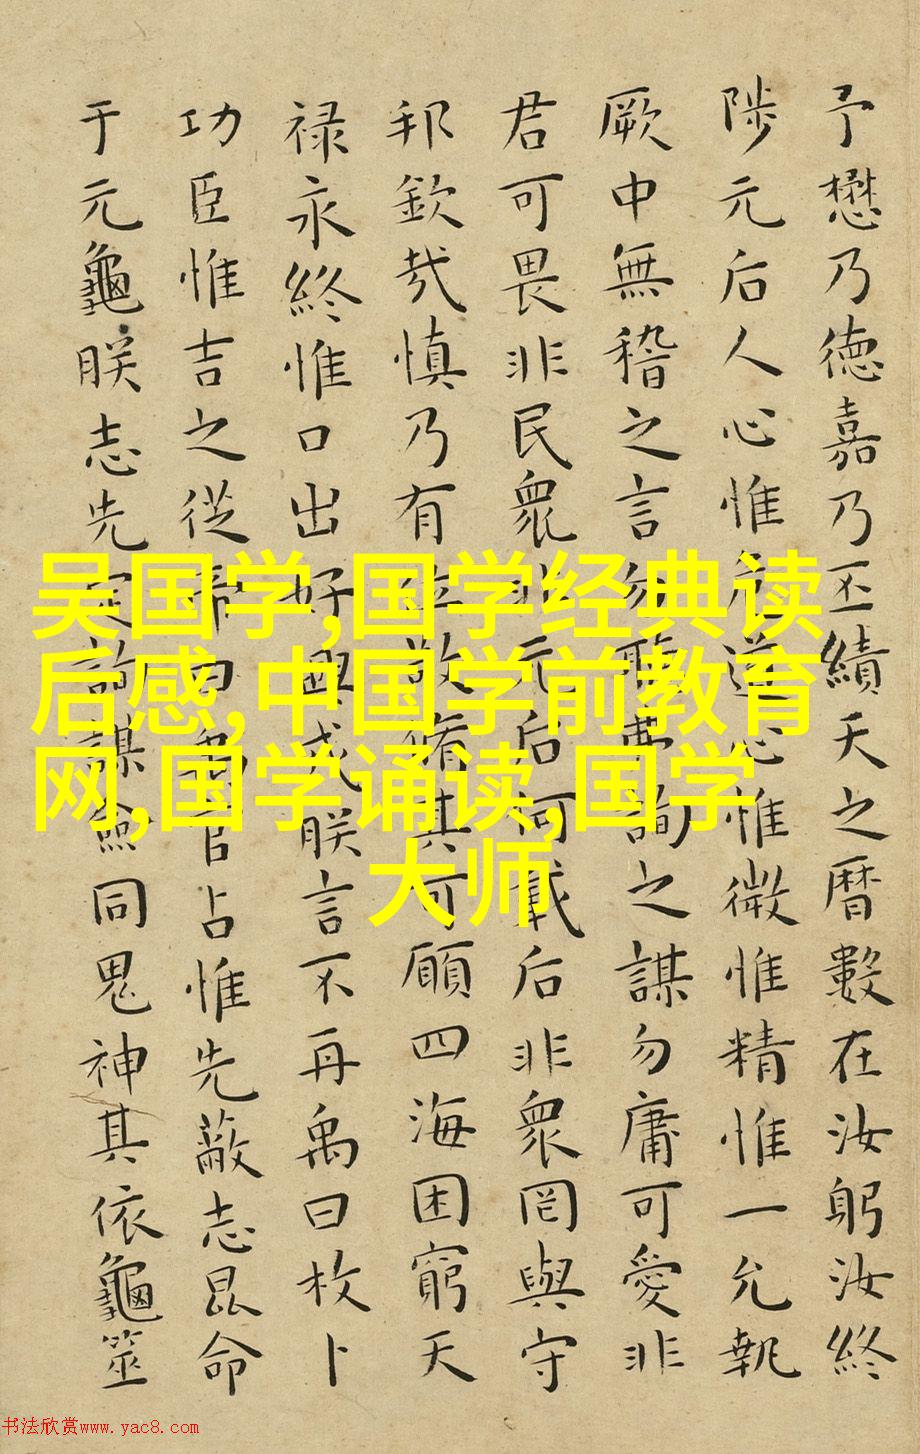 予懋乃德嘉乃丕績天之曆數在汝躬汝終
陟元后人心惟危道心惟微惟精惟一允執
厥中無稽之言勿聽弗詢之謀勿庸可愛非
君可畏非民衆非元后何戴后非衆罔與守
邦欽哉慎乃有位敬脩其可願四海困窮天
禄永終惟口出好興戎朕言不再禹曰枚卜
功臣惟吉之從帝曰禹官占惟先蔽志昆命
于元龜朕志先定詢謀僉同鬼神其依龜筮
吴国学,国学经典读
后感,中国学前教育
网,国学诵读,国学
大师
书法欣赏www.yac8.com